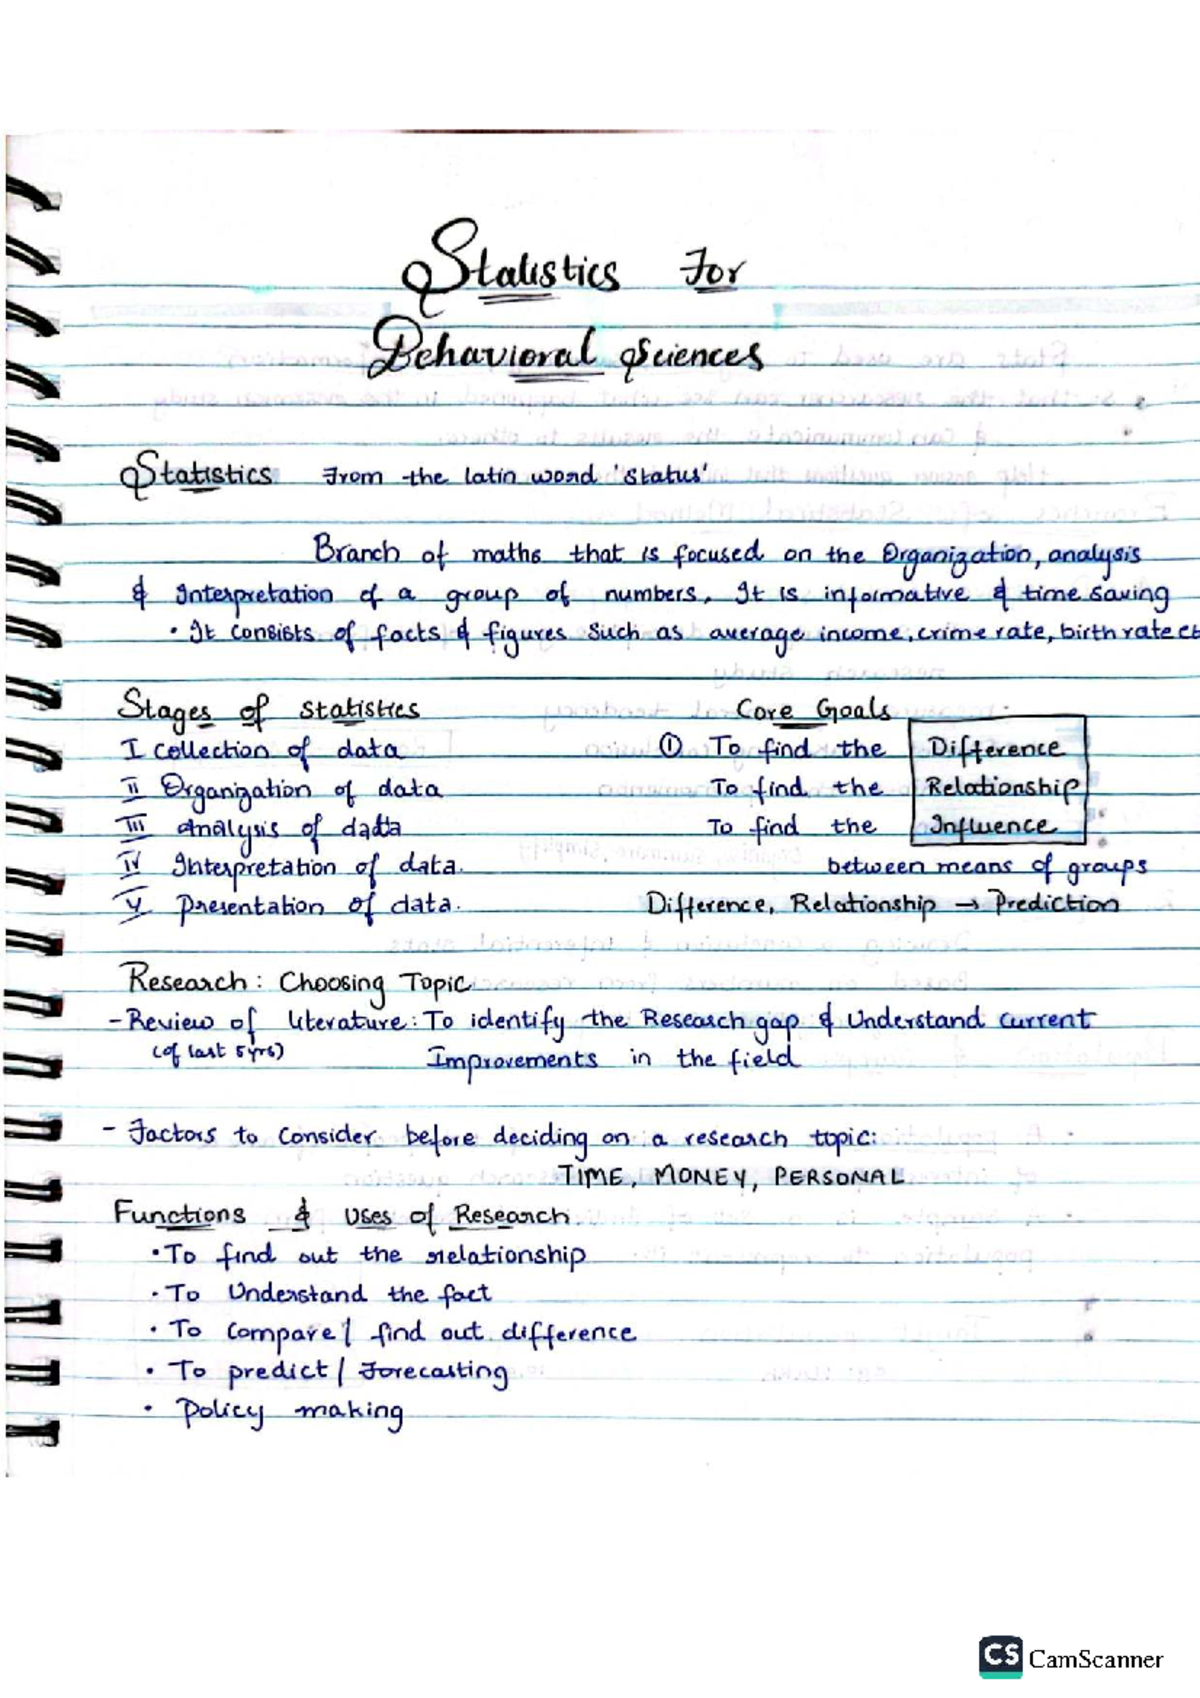 Statistics For
Behavioral Sciences
Statistics From the latin word 'Status'
Branch of maths that is focused on the Organization, analysis
& Interpretation of a group of numbers. It is informative & time saving
• It consists of facts & figures such as average income, crime rate, birth rate
Stages of statistics
I collection of data
II Organization of data
III analysis of data
IV Interpretation of data.
V presentation of data.
Core Goals
① To find the Difference
To find the Relationship
To find the Influence
between means of groups
Difference, Relationship → Prediction
Research: Choosing Topic
- Review of literature: To identify the Research gap & Understand current
(of last 5yrs) Improvements in the field
- Factors to consider before deciding on a research topic:
TIME, MONEY, PERSONAL
Functions & Uses of Research
• To find out the relationship
• To Understand the fact
• To compare/ find out difference
• To predict/ Forecasting
• Policy making
CS CamScanner